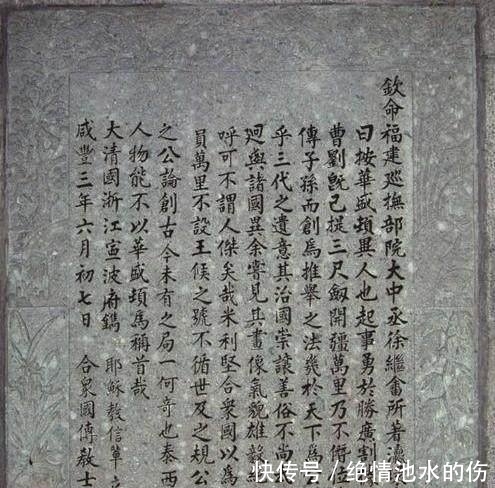 欽命福建巡撫部院大中丞徐繼畬所著瀛
曰按華盛頓異人也起事勇於勝廣割
曹劉既已提三尺劍開疆萬里乃不僭位
傳子孫而創為推舉之法幾於天下為
乎三代之遺意其治國崇讓善俗不尚
迥與諸國異余嘗見其畫像氣貌雄毅
呼可不謂人傑矣哉米利堅合眾國以為
員萬里不設王侯之號不循世及之規公
之公論創古今未有之局一何奇也泰西
人物能不以華盛頓為稱首哉
大清國浙江寧波府鐫 耶穌教信輩立
咸豐三年六月初七日 合眾國傳教士
快传号/绝情池水的伤